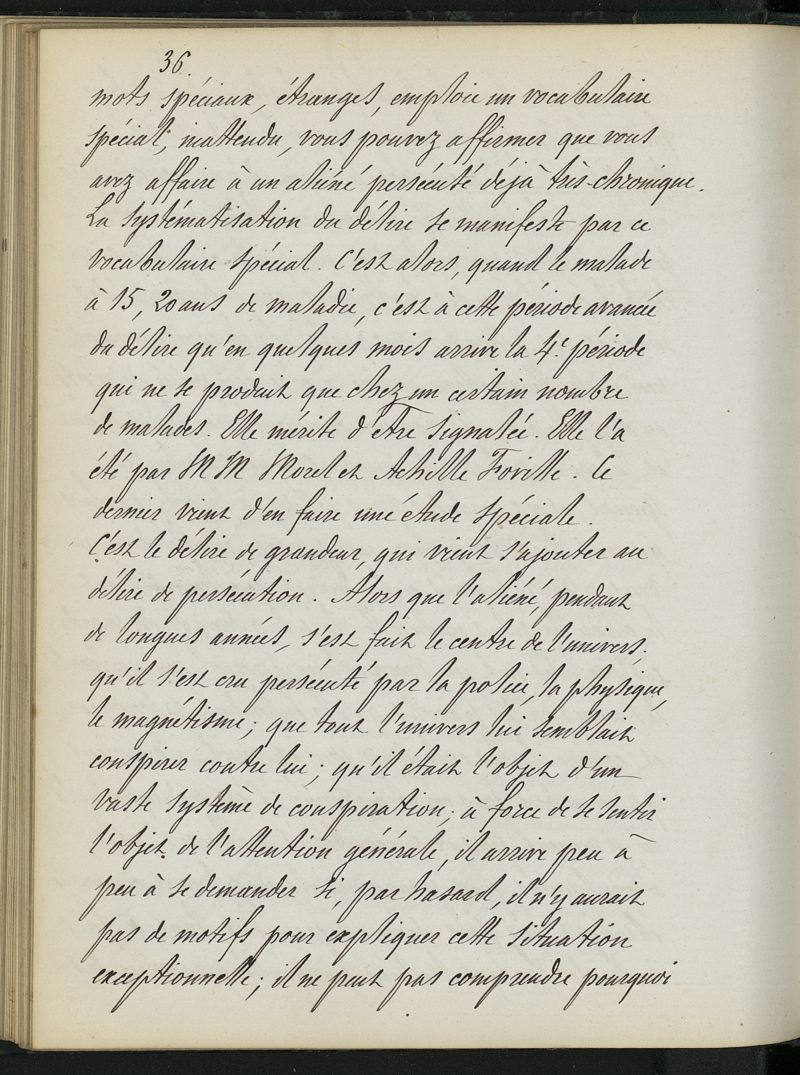 36.
mots spéciaux, étranges, emploie un vocabulaire
spécial, inattendu, vous pouvez affirmer que vous
avez affaire à un aliéné persécuté déjà très-chronique.
La systématisation du délire se manifeste par ce
vocabulaire spécial. C'est alors, quand le malade
à 15, 20 ans de maladie, c'est à cette période avancée
du délire qu'en quelques mois arrive la 4e. période
qui ne se produit que chez un certain nombre
de malades. Elle mérite d'être signalée. Elle l'a
été par MM Morel et Achille Foville. Ce
dernier vient d'en faire une étude spéciale.
C'est le délire de grandeur, qui vient s'ajouter au
délire de persécution. Alors que l'aliéné, pendant
de longues années, s'est fait le centre de l'univers;
qu'il s'est cru persécuté par la police, la physique,
le magnétisme; que tout l'univers lui semblait
conspirer contre lui; qu'il était l'objet d'un
vaste système de conspiration; à force de se sentir
l'objet de l'attention générale, il arrive peu à
peu à se demander si, par hasard, il n'y aurait
pas de motifs pour expliquer cette situation
exceptionnelle; il ne peut pas comprendre pourquoi